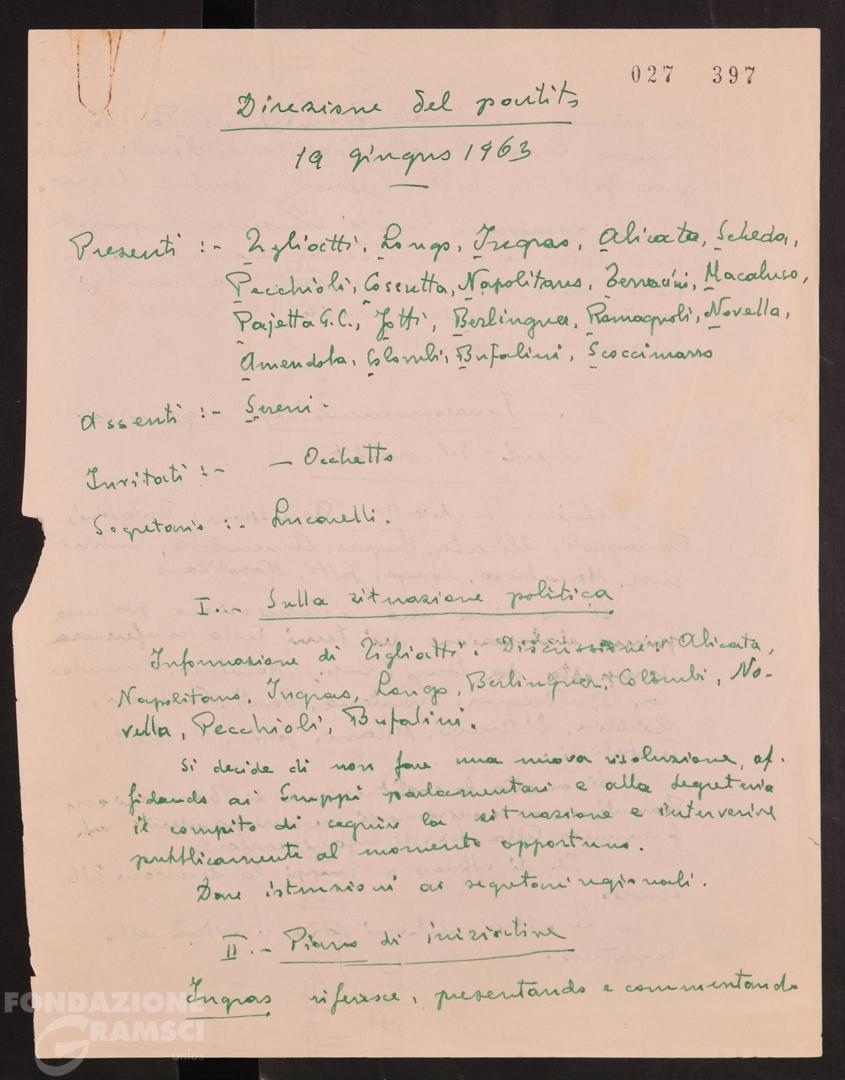 027 397
Direzione del partito
19 giugno 1963
Presenti :- Togliatti, Longo, Ingrao, Alicata, Scheda,
Pecchioli, Cossutta, Napolitano, Terracini, Macaluso,
Pajetta G.C., Jotti, Berlinguer, Romagnoli, Novella,
Amendola, Colombi, Bufalini, Scoccimarro
Assenti :- Sereni -
Invitati :- - Occhetto
Segretario :- Lucarelli.
I.- Sulla situazione politica
Informazione di Togliatti. Discussione: Alicata,
Napolitano, Ingrao, Longo, Berlinguer, Colombi, No-
vella, Pecchioli, Bufalini.
Si decide di non fare una nuova risoluzione, af-
fidando ai Gruppi parlamentari e alla Segreteria
il compito di seguire la situazione e intervenire
pubblicamente al momento opportuno.
Dare istruzioni ai segretari regionali.
II.- Piano di iniziative
Ingrao riferisce, presentando e commentando
FONDAZIONE
GRAMSCI
onlus